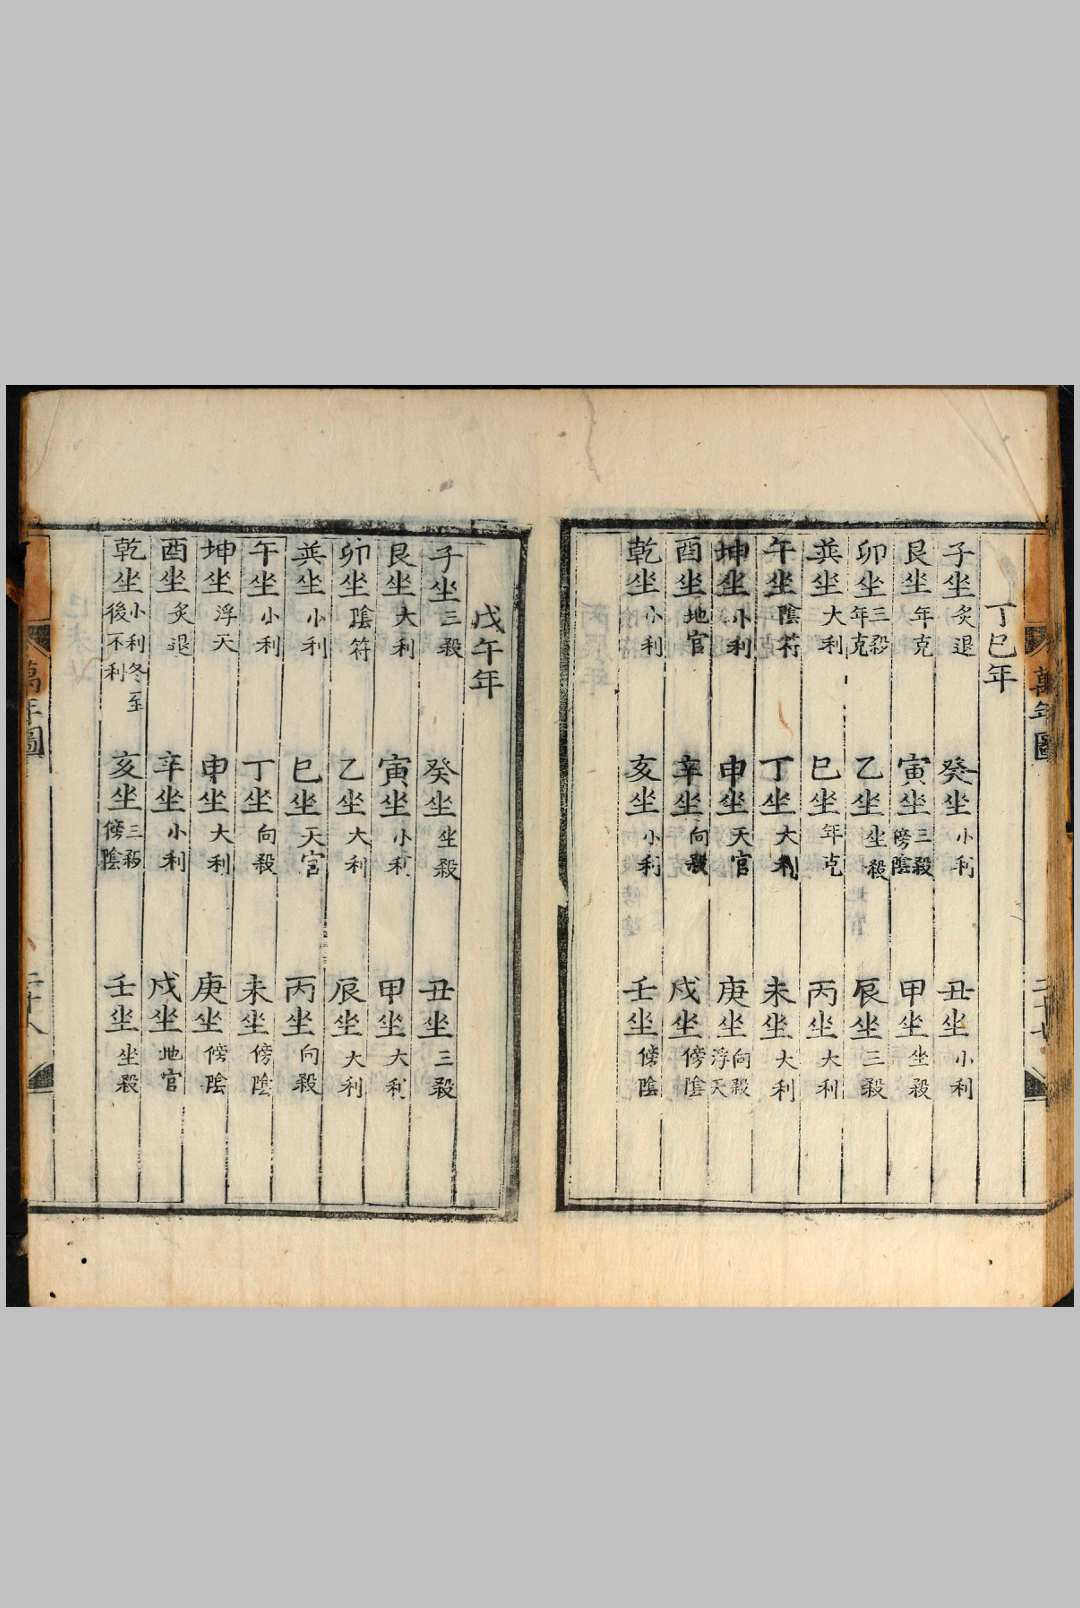 萬年圖
二十七
丁巳年
子坐 炙退 癸坐 小利 丑坐 小利
艮坐 年克 寅坐 三殺 傍陰 甲坐 坐殺
卯坐 三殺 年克 乙坐 坐殺 辰坐 三殺
巽坐 大利 巳坐 年克 丙坐 大利
午坐 陰符 丁坐 大利 未坐 大利
坤坐 小利 申坐 天官 庚坐 向殺 浮天
酉坐 地官 辛坐 向殺 戌坐 傍陰
乾坐 小利 亥坐 小利 壬坐 傍陰
戊午年
子坐 三殺 癸坐 坐殺 丑坐 三殺
艮坐 大利 寅坐 小利 甲坐 大利
卯坐 陰符 乙坐 大利 辰坐 大利
巽坐 小利 巳坐 天官 丙坐 向殺
午坐 小利 丁坐 向殺 未坐 傍陰
坤坐 浮天 申坐 大利 庚坐 傍陰
酉坐 炙退 辛坐 小利 戌坐 地官
乾坐 小利冬至 後不利 亥坐 三殺 傍陰 壬坐 坐殺
萬年圖
二十八